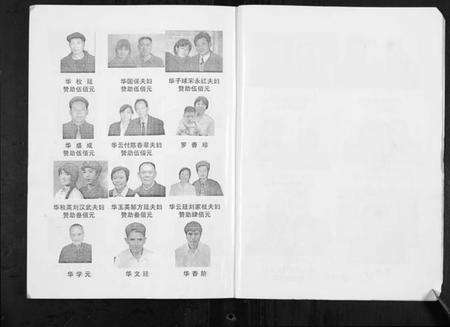 华枚廷
赞助伍佰元
华国保夫妇
赞助伍佰元
华子球宋永红夫妇
赞助伍佰元
华盛成
赞助伍佰元
华云付陈春翠夫妇
赞助伍佰元
罗香珍
华牧英刘汉武夫妇
赞助叁佰元
华玉英邹方廷夫妇
赞助叁佰元
华云廷刘家桂夫妇
赞助肆佰元
华学元
华文廷
华香阶